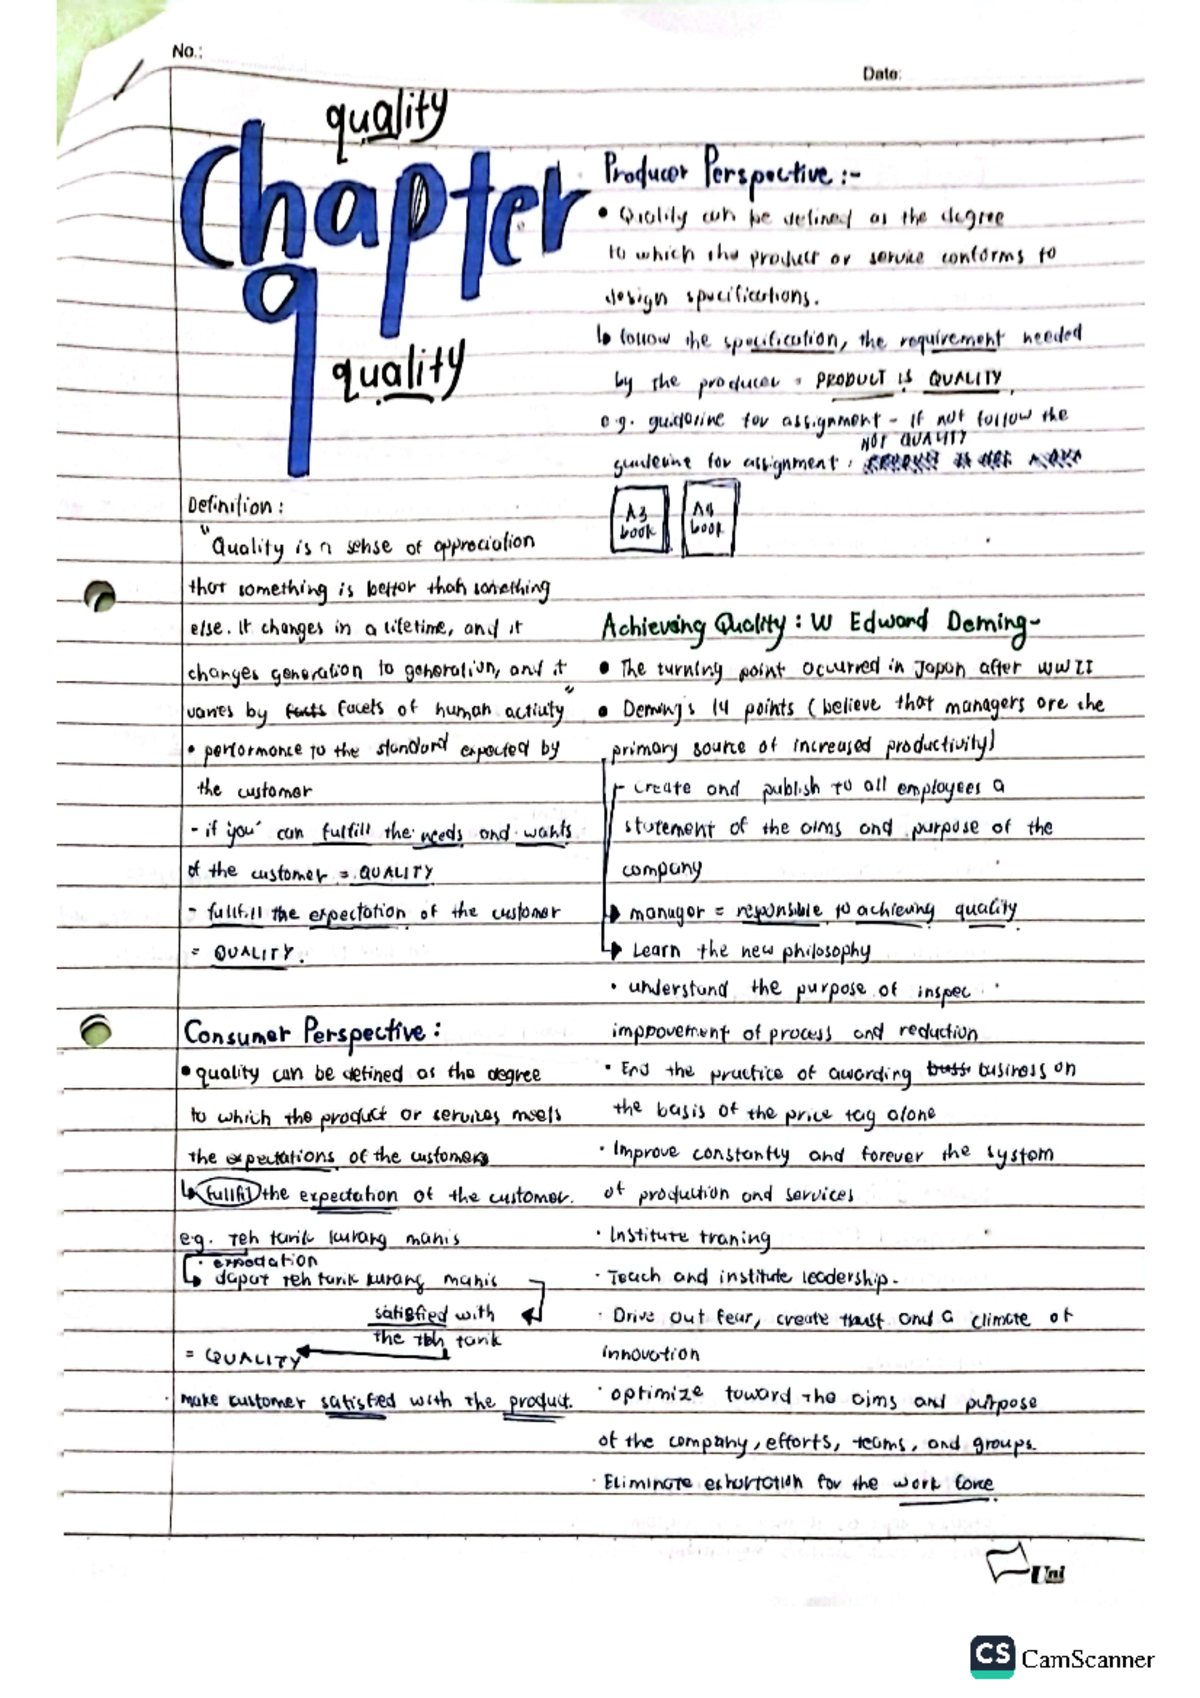 No.:
Date:
quality
Chapter
9
quality
Definition:
"Quality is a sense of appreciation
that something is better than something
else. It changes in a lifetime, and it
changes generation to generation, and it
varies by facets of human activity"
• performance to the standard expected by
the customer
- if you can fulfill the needs and wants
of the customer = QUALITY
- fullfill the expectation of the customer
= QUALITY.
Consumer Perspective:
• quality can be defined as the degree
to which the product or services meets
the expectations of the customers
↳ fullfil the expectation of the customer.
e.g. Teh tarik kurang manis
• expectation
dapat teh tarik kurang manis
satisfied with
the teh tarik
= QUALITY
make customer satisfied with the product.
Producer Perspective:-
• Quality can be defined as the degree
to which the product or service conforms to
design specifications.
↳ follow the specification, the requirement needed
by the producer = PRODUCT IS QUALITY
e.g. guideline for assignment - If not follow the
NOT QUALITY
guideline for assignment :
A3
book
A4
book
Achieving Quality: W Edward Deming-
• The turning point occurred in Japan after WWII
• Deming's 14 points (believe that managers are the
primary source of increased productivity)
- create and publish to all employees a
statement of the aims and purpose of the
company
manager = responsible to achieving quality
Learn the new philosophy
• understand the purpose of inspec
improvement of process and reduction
• End the practice of awarding business on
the basis of the price tag alone
• Improve constantly and forever the system
of production and services
• Institute traning
• Teach and institute leadership.
• Drive out fear, create trust and a climate of
innovation
• optimize toward the aims and purpose
of the company, efforts, teams, and groups.
• Eliminate exhortation for the work force
Uni
CS CamScanner